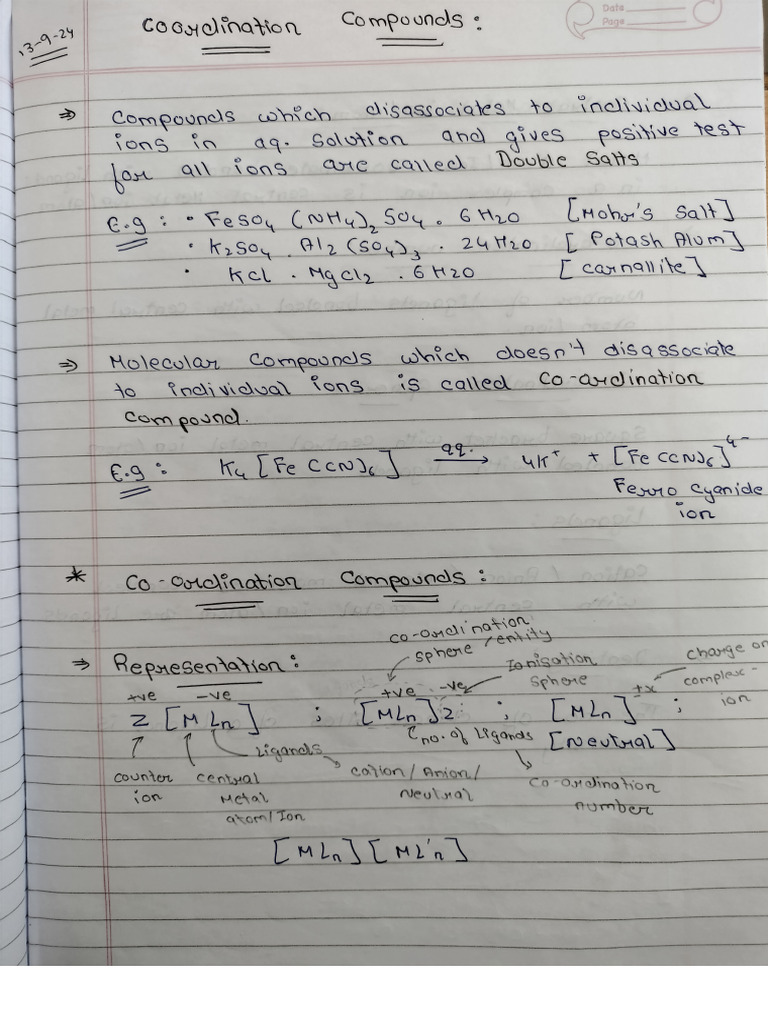 Date
Page
13-9-24
Coordination Compounds :
⇒ Compounds which disassociates to individual
ions in aq. solution and gives positive test
for all ions are called Double Salts
E.g : • FeSO4 (NH4)2 SO4 . 6H2O [Mohr's Salt]
• K2SO4 . Al2(SO4)3 . 24H2O [Potash Alum]
• KCl . MgCl2 . 6H2O [Carnallite]
⇒ Molecular Compounds which doesn't disassociate
to individual ions is called Co-ordination
Compound.
E.g : K4 [Fe(CN)6] aq. → 4K+ + [Fe(CN)6]4-
Ferro Cyanide
ion
* Co-ordination Compounds :
co-ordination
sphere / entity
⇒ Representation : Ionisation sphere charge on complex-ion
+ve -ve +ve -ve
Z [MLn] ; [MLn]Z ; [MLn]±x ;
no. of Ligands [Neutral]
counter ion central Metal atom/Ion Ligands → cation/Anion/ Neutral co-ordination number
[MLn][ML'n]